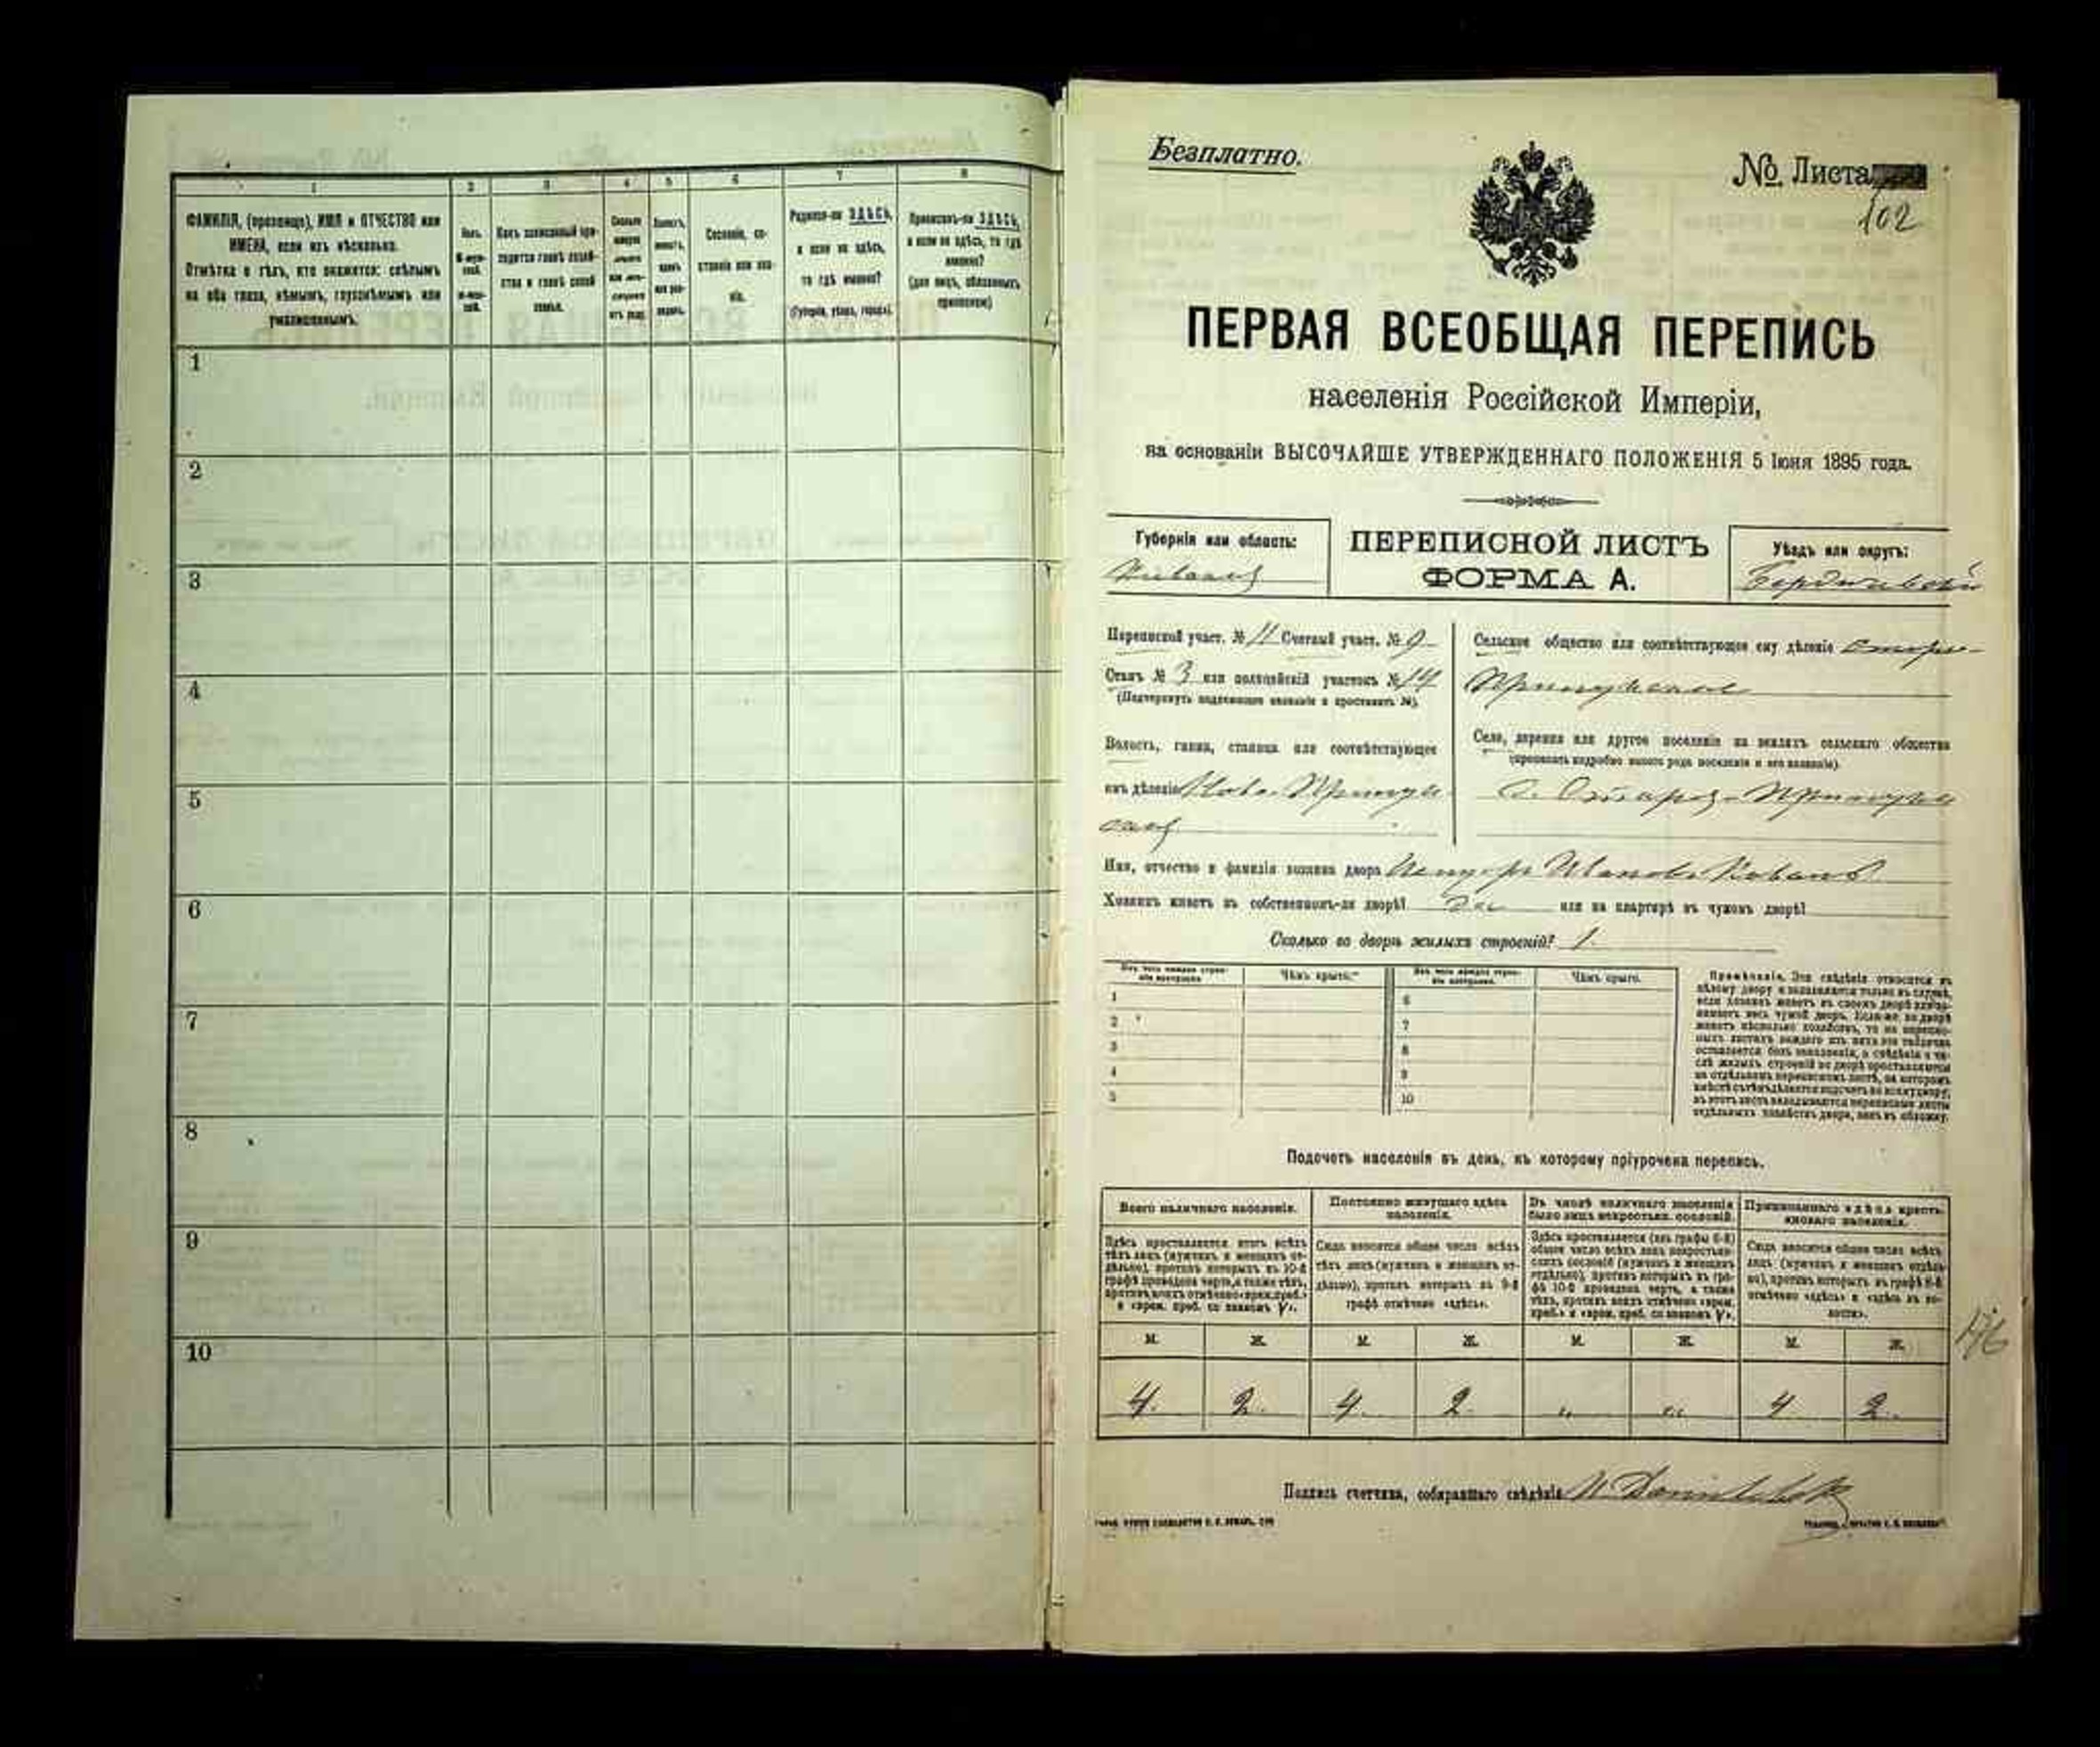 1 2 3 4 5 6 7 8
ФАМИЛІЯ, (прозвище), ИМЯ и ОТЧЕСТВО или
ИМЕНА, если ихъ нѣсколько.
Отмѣтка о тѣхъ, кто окажется: слѣпымъ
на оба глаза, нѣмымъ, глухонѣмымъ или
умалишеннымъ.
Полъ.
М-муж-
ской.
Ж-жен-
ской.
Какъ записанный при-
ходится главѣ хозяй-
ства и главѣ своей
семьи.
Сословіе, со-
стояніе или зва-
ніе.
Родился-ли ЗДѢСЬ,
а если не здѣсь,
то гдѣ именно?
(Губернія, уѣздъ, городъ).
Приписанъ-ли ЗДѢСЬ,
а если не здѣсь, то гдѣ
именно?
(для лицъ, обязанныхъ
припискою)
1
2
3
4
5
6
7
8
9
10
Безплатно.
№ Листа
102
ПЕРВАЯ ВСЕОБЩАЯ ПЕРЕПИСЬ
населенія Россійской Имперіи,
на основаніи ВЫСОЧАЙШЕ УТВЕРЖДЕННАГО ПОЛОЖЕНІЯ 5 Іюня 1895 года.
Губернія или область:
Кіевская
ПЕРЕПИСНОЙ ЛИСТЪ
ФОРМА А.
Уѣздъ или округъ:
Бердичевскій
Переписной участ. № 11 Счетный участ. № 9
Станъ № 3 или полицейскій участокъ № 14
(Подчеркнуть надлежащее названіе и проставить №).
Волость, гмина, станица или соотвѣтствующее
имъ дѣленіе Ново-Прилук
ская
Сельское общество или соотвѣтствующее ему дѣленіе Старо-
Прилукское
Село, деревня или другое поселеніе на земляхъ сельскаго общества
(прописать подробно какого рода поселеніе и его названіе).
с. Старая-Прилука
Имя, отчество и фамилія хозяина двора Иванов
Хозяинъ живетъ въ собственномъ-ли дворѣ? Да или на квартирѣ въ чужомъ дворѣ?
Сколько во дворѣ жилыхъ строеній? 1.
Изъ чего каждое строе-
ніе построено. Чѣмъ крыто. Изъ чего каждое строе-
ніе построено. Чѣмъ крыто.
1 6
2 7
3 8
4 9
5 10
Примѣчаніе. Эти свѣдѣнія относятся къ
цѣлому двору и заполняются только въ случаѣ,
если хозяинъ живетъ въ своемъ дворѣ или за-
нимаетъ весь чужой дворъ. Если-же во дворѣ
живетъ нѣсколько хозяйствъ, то на перепис-
ныхъ листахъ каждаго изъ нихъ эта табличка
оставляется безъ заполненія, а свѣдѣнія о чи-
слѣ жилыхъ строеній во дворѣ проставляются
на отдѣльномъ переписномъ листѣ, на которомъ
вмѣстѣ съ тѣмъ дѣлается подсчетъ по всему двору;
въ этотъ листъ вкладываются переписные листы
отдѣльныхъ хозяйствъ двора, какъ въ обложку.
Подсчетъ населенія въ день, къ которому пріурочена перепись.
Всего наличнаго населенія.
Здѣсь проставляется итогъ всѣхъ
тѣхъ лицъ (мужчинъ и женщинъ от-
дѣльно), противъ которыхъ въ 10-й
графѣ проведена черта, а также тѣхъ,
противъ коихъ отмѣчено «врем. преб.»
и «врем. преб. со знакомъ V».
Постоянно живущаго здѣсь
населенія.
Сюда вносится общее число всѣхъ
тѣхъ лицъ (мужчинъ и женщинъ от-
дѣльно), противъ которыхъ въ 9-й
графѣ отмѣчено «здѣсь».
Въ числѣ наличнаго населенія
было лицъ некрестьян. сословій.
Здѣсь проставляется (изъ графы 6-й)
общее число всѣхъ лицъ некрестьян-
скихъ сословій (мужчинъ и женщинъ
отдѣльно), противъ которыхъ въ гра-
фѣ 10-й проведена черта, а также
тѣхъ, противъ коихъ отмѣчено «врем.
преб.» и «врем. преб. со знакомъ V».
Приписаннаго здѣсь кресть-
янскаго населенія.
Сюда вносится общее число всѣхъ
лицъ (мужчинъ и женщинъ отдѣль-
но), противъ которыхъ въ графѣ 8-й
отмѣчено «здѣсь» и «здѣсь въ во-
лости».
М. Ж. М. Ж. М. Ж. М. Ж.
4 2 4 2 „ „ 4 2
176
Подпись счетчика, собиравшаго свѣдѣнія